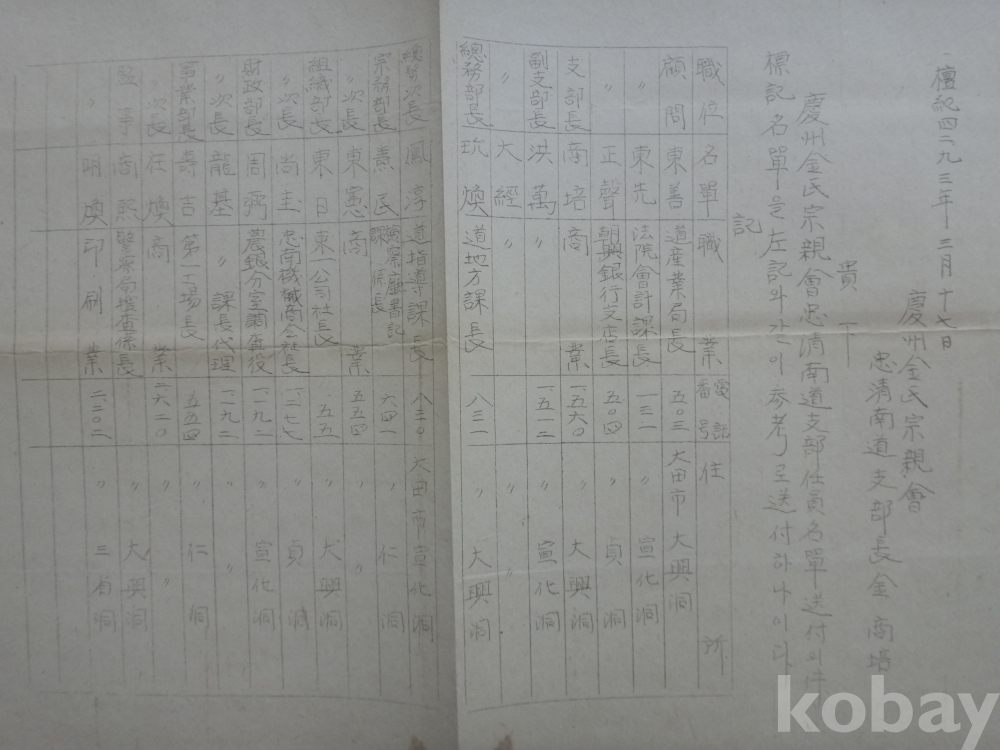 檀紀四二九三年三月十七日
慶州金氏宗親會
忠淸南道支部長金商培
貴下
慶州金氏宗親會忠淸南道支部任員名單送付이件
標記名單을左記와갇이參考로送付하나이다
記
職位 名單 職業 電話番号 住所
顧問 東善 道産業局長 五〇三 大田市 大興洞
〃 東先 法院會計課長 一三一 〃 宣化洞
〃 正聲 朝興銀行支店長 五〇四 〃 貞洞
支部長 商培 商業 一五六〇 〃 大興洞
副支部長 洪萬 〃 一五一二 〃 宣化洞
〃 大經 〃 〃 〃
總務部長 玧煥 道地方課長 八三一 〃 大興洞
總務次長 鳳淳 道指導課長 八三〇 大田市 宣化洞
宗務部長 憙民 課係長 六四一 〃 仁洞
〃次長 東憲 商業 五五四 〃 〃
組織部長 東日 東一公司社長 五五 〃 大興洞
〃次長 尚圭 忠南機械商会社長 一二七七 〃 貞洞
財政部長 周弼 農銀分室調査役 一一九二 〃 宣化洞
〃次長 龍基 〃課長代理 一一九二 〃 〃
事業部長 壽吉 第一工場長 五五四 〃 仁洞
〃次長 在煥 商業 二六二〇 〃 〃
監事 商熙 警察局捜査係長 〃 大興洞
〃 明煥 印刷業 二二〇二 〃 三省洞
kobay